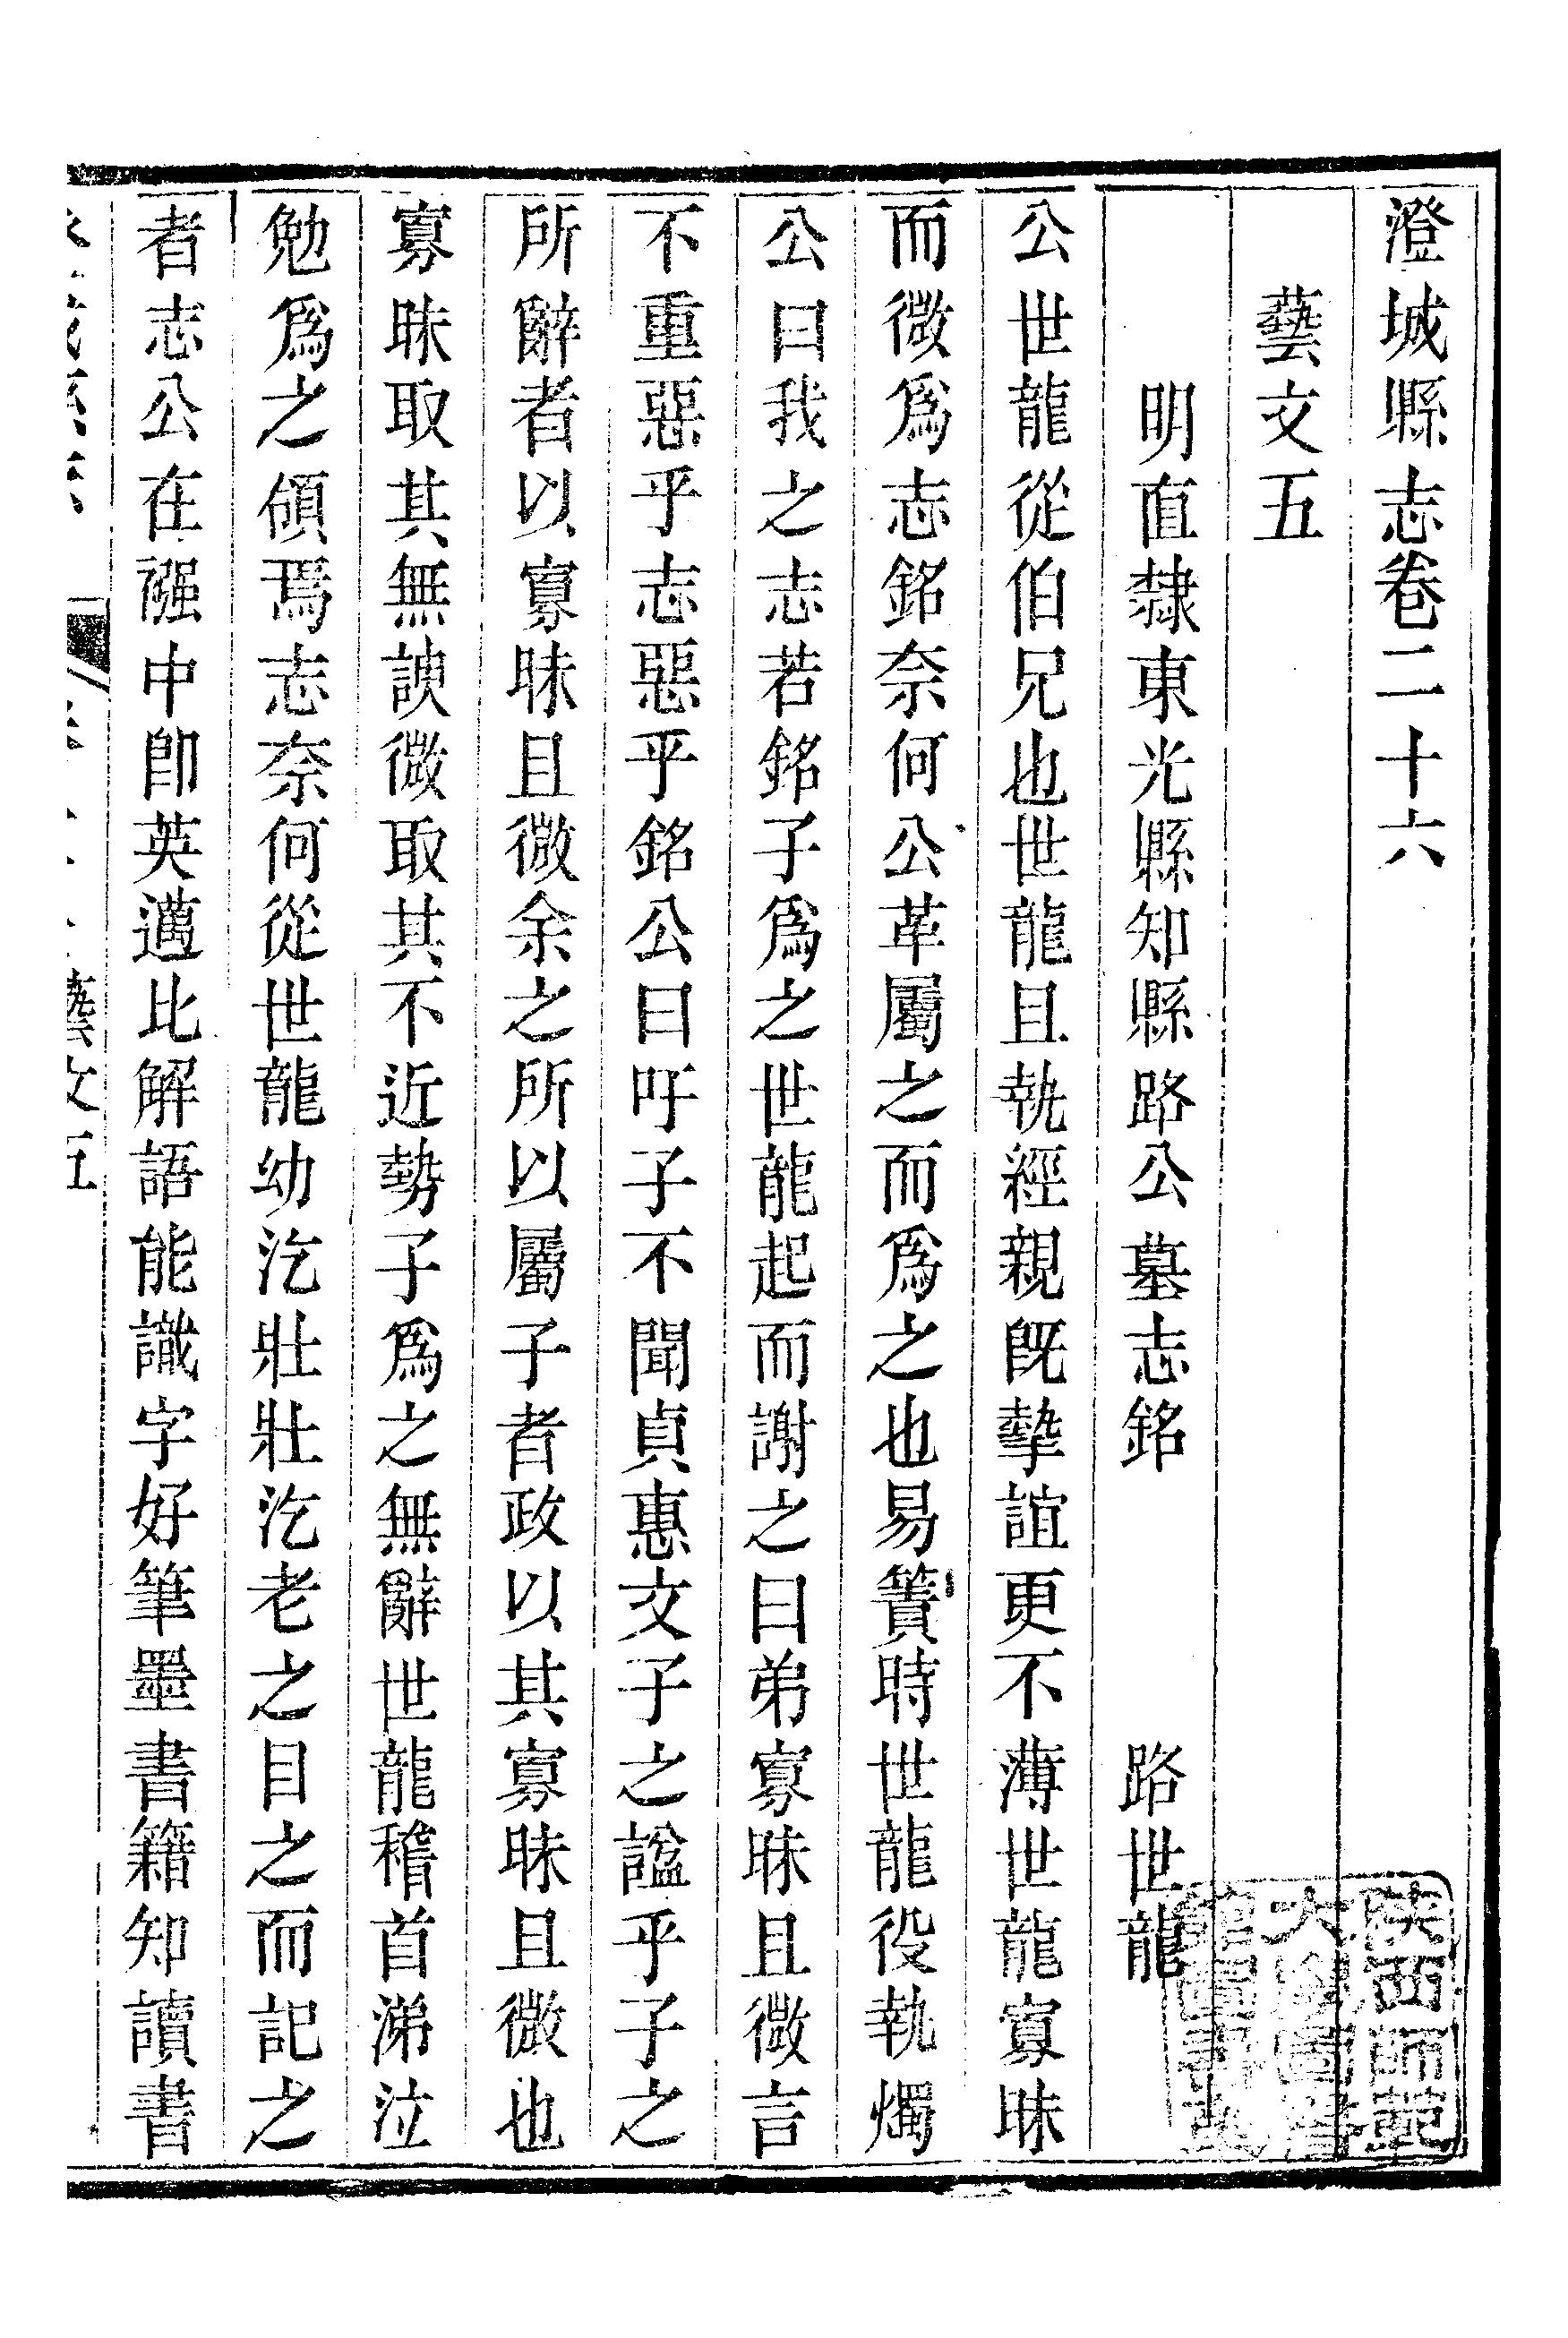 澄城縣志卷二十六
藝文五
明直隸東光縣知縣路公墓志銘 路世龍
公世龍從伯兄也世龍且執經親旣摯誼更不薄世龍寡昧
而微爲志銘奈何公革屬之而爲之也易簀時世龍役執燭
公曰我之志若銘子爲之世龍起而謝之曰弟寡昧且微言
不重惡乎志惡乎銘公曰吁子不聞貞惠文子之諡乎子之
所辭者以寡昧且微余之所以屬子者政以其寡昧且微也
寡昧取其無諛微取其不近勢子爲之無辭世龍稽首涕泣
勉爲之頷焉志奈何從世龍幼汔壯壯汔老之目之而記之
者志公在襁中卽英邁比解語能識字好筆墨書籍知讀書
藝文五
陝西師範大學圖書館圖書